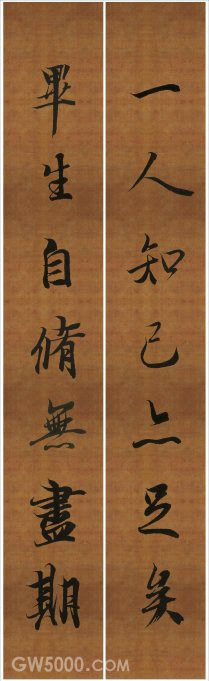 一人知己亦足矣
畢生自脩無盡期
GW5000.com